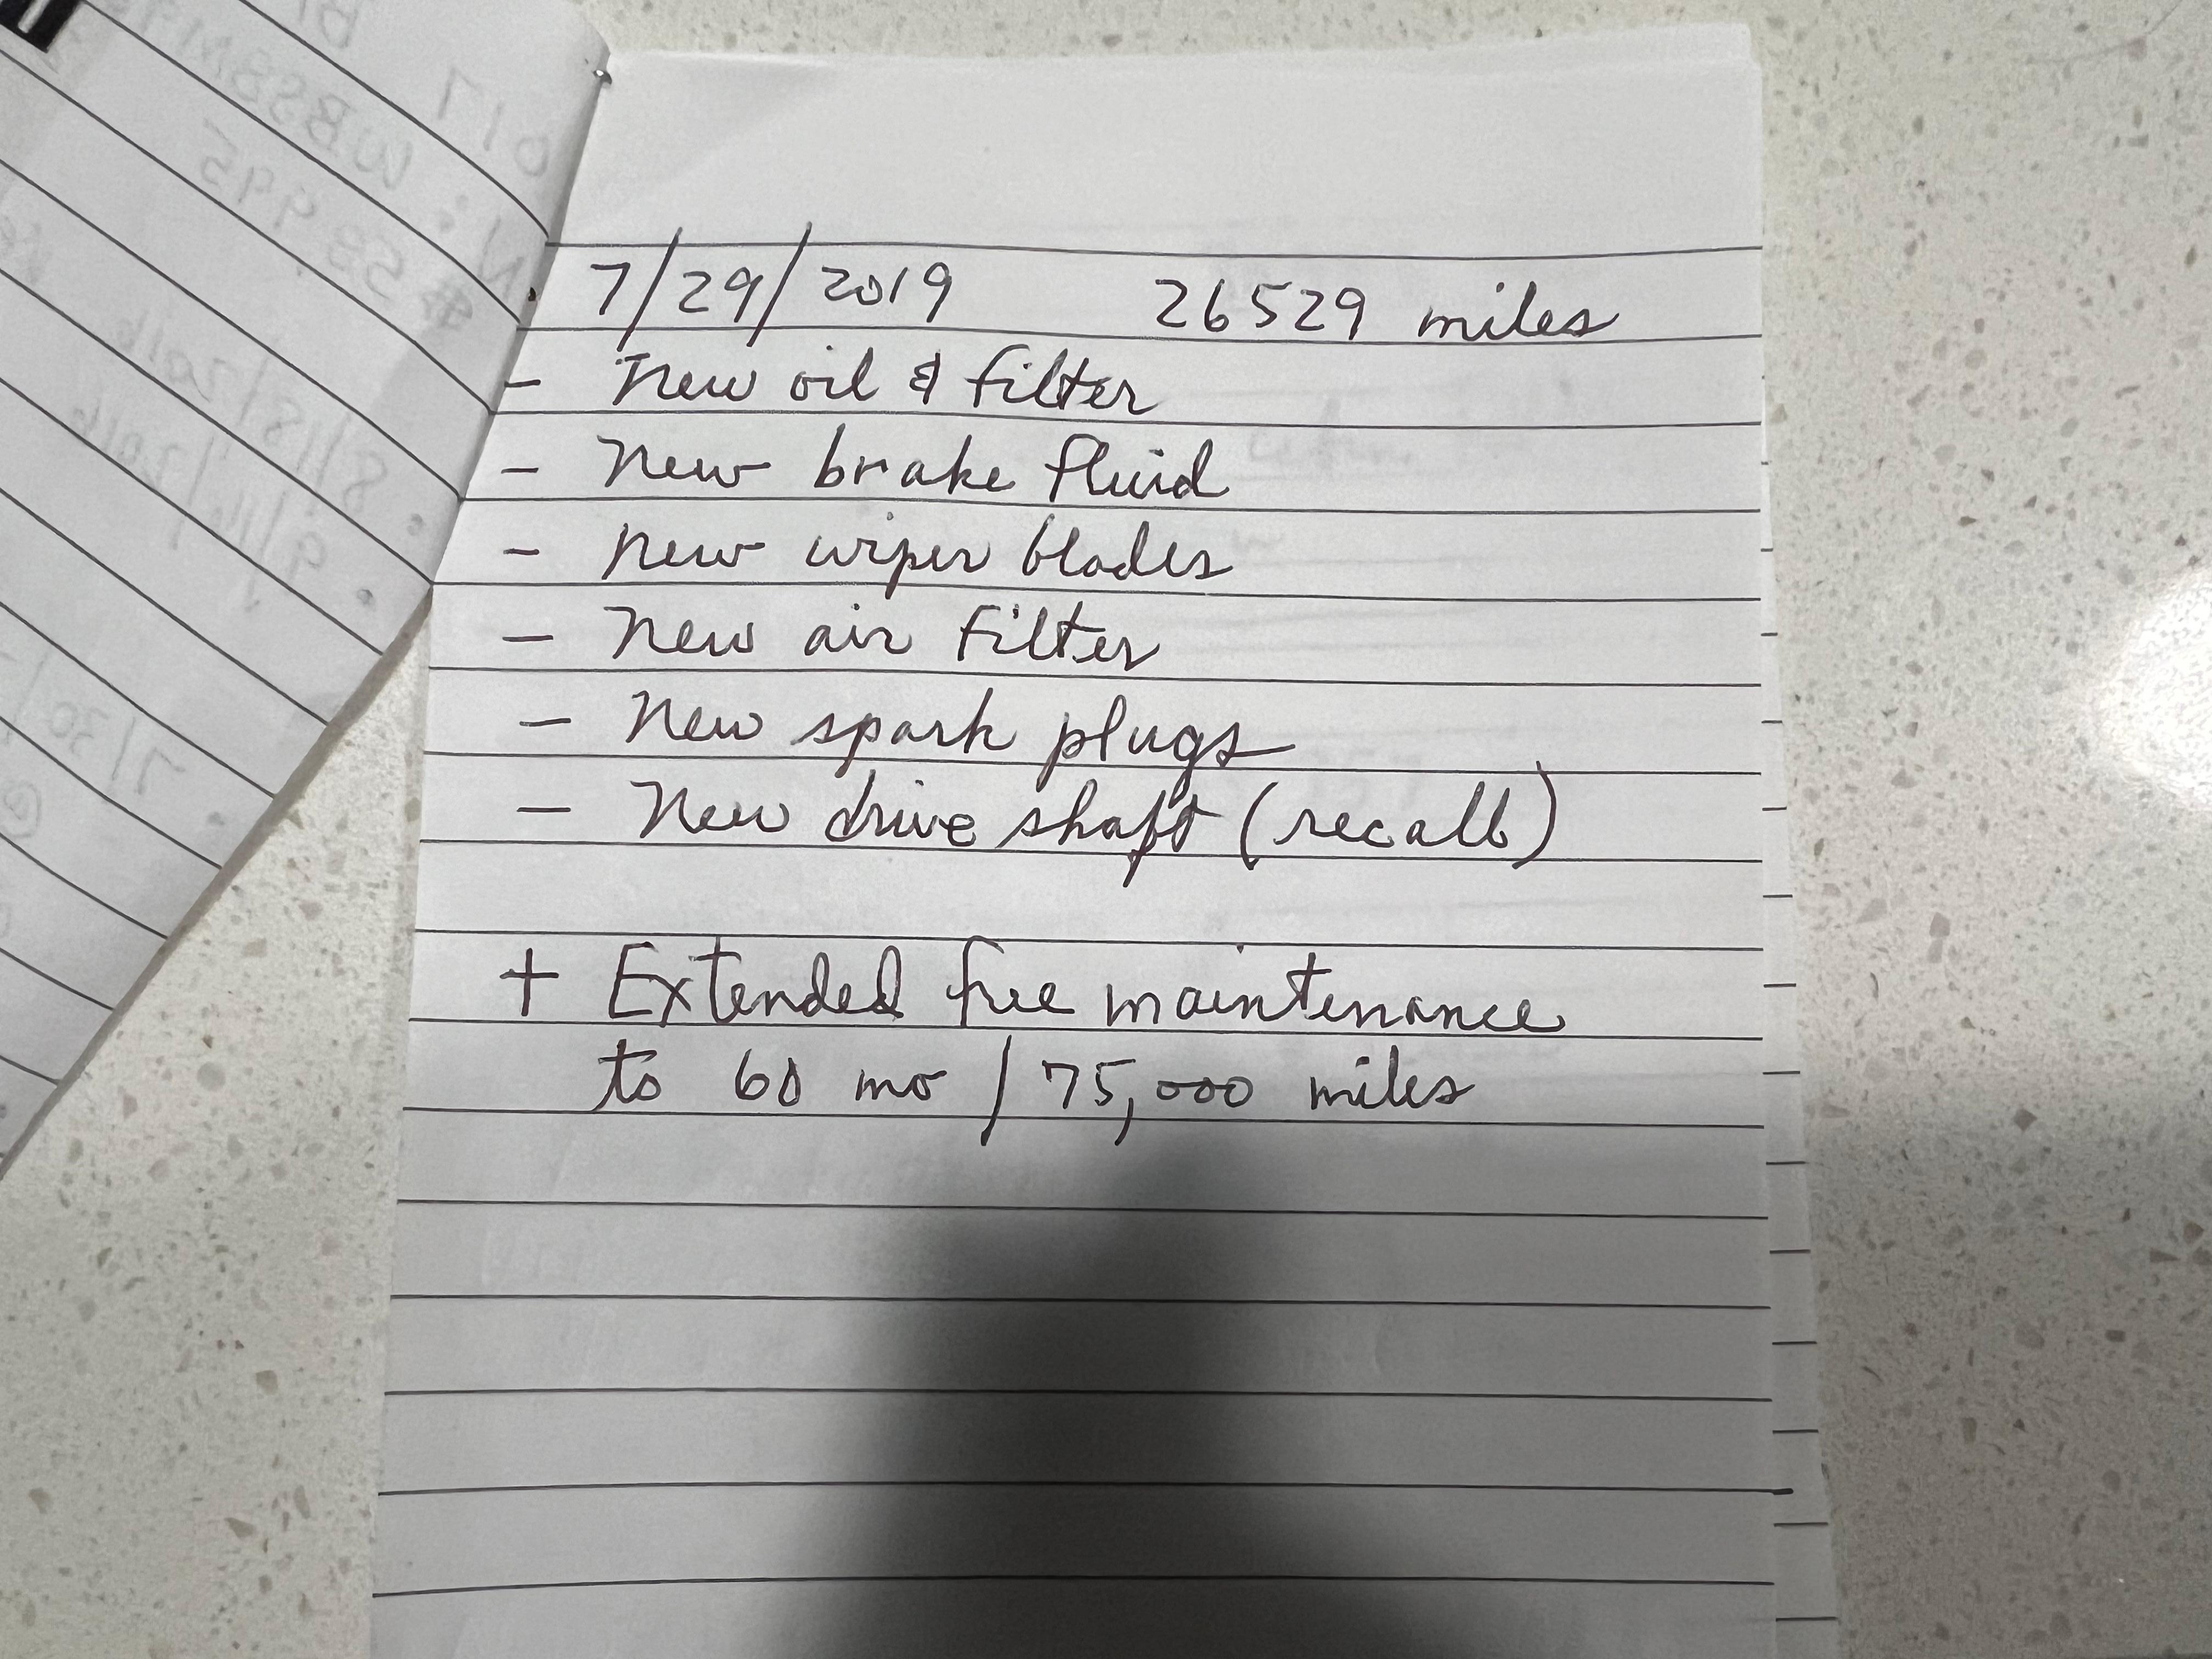 7/29/2019 26529 miles
- New oil & filter
- New brake fluid
- New wiper blades
- New air filter
- New spark plugs
- New drive shaft (recall)
+ Extended free maintenance
to 60 mo / 75,000 miles